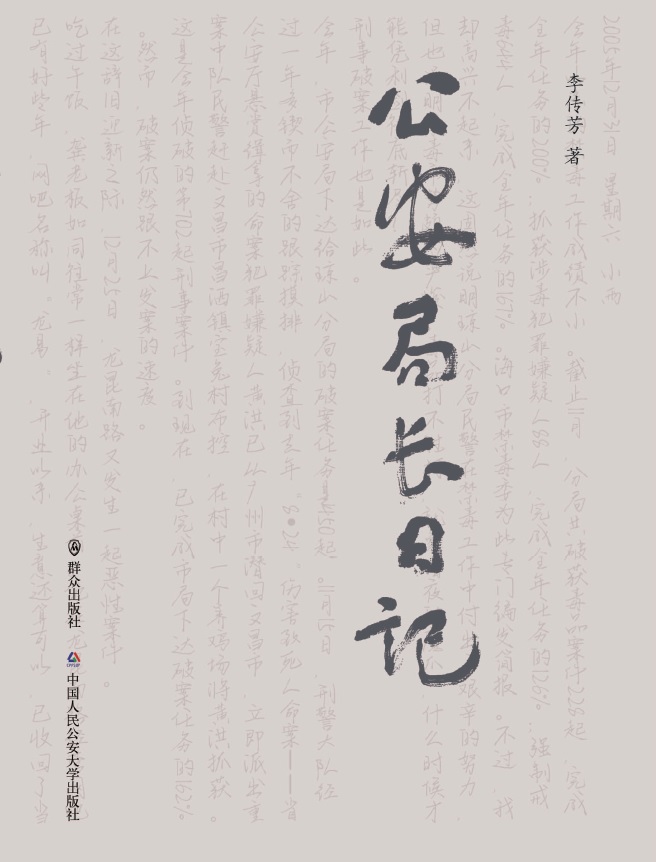 2005年12月31日 星期六 小雨
李传芳 著
毒工作成绩不小。截止11月 分局共破获毒品案件225起 完成
全年任务的200%，抓获涉毒犯罪嫌疑人88人，完成全年任务的126%，强制戒
完成全年任务的167%。海口市禁毒委为此专门编发简报。不过 我
却高兴不起来 这周 说明琼山分局民警在禁毒工作中付出 艰辛的努力，
什么时候才
公安局长日记
刑事破案工作也是如此。
今年 市公安局下达给琼山分局的破案任务是450起。11月15日，刑警大队经
过一年多锲而不舍的跟踪摸排，侦查到去年“8•24”伤害致死人命案——省
公安厅悬赏缉拿的命案犯罪嫌疑人黄洪已从广州市潜回文昌市 立即派出重
案中队民警赶赴文昌市昌洒镇宝兔村布控 在村中一个养鸡场将黄洪抓获。
这是今年侦破的第702起刑事案件。到现在，已完成市局下达破案任务的162%
。然而 破案仍然跟不上发案的速度。
在这辞旧迎新之际，12月25日，龙昆南路又发生一起恶性案件。
吃过午饭 龚老板如同往常一样坐在他的办公桌
群众出版社
中国人民公安大学出版社
已有好些年，网吧名称叫“龙易”，开业以来，生意还算可以，已收回了当